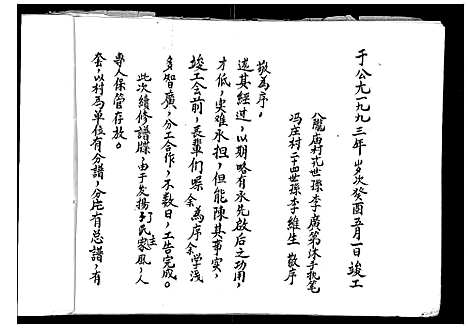 于公元一九九三年岁次癸酉五月一日竣工
龍庙村 世孙李廣第沐手执笔
冯庄村二十四世孙李維生 敬序
敬為序。
述其经过，以期略有承先啟后之功用，
才低，实难承担，但能陳其事实，
竣工合前，長輩们喙余為序余学浅
多智廣，分工合作，不数日，工告完成。
此次续修譜牒，由于发揚了民主家風，人
專人保管存放。
套，以村為单位有分譜，分庄有总譜，有